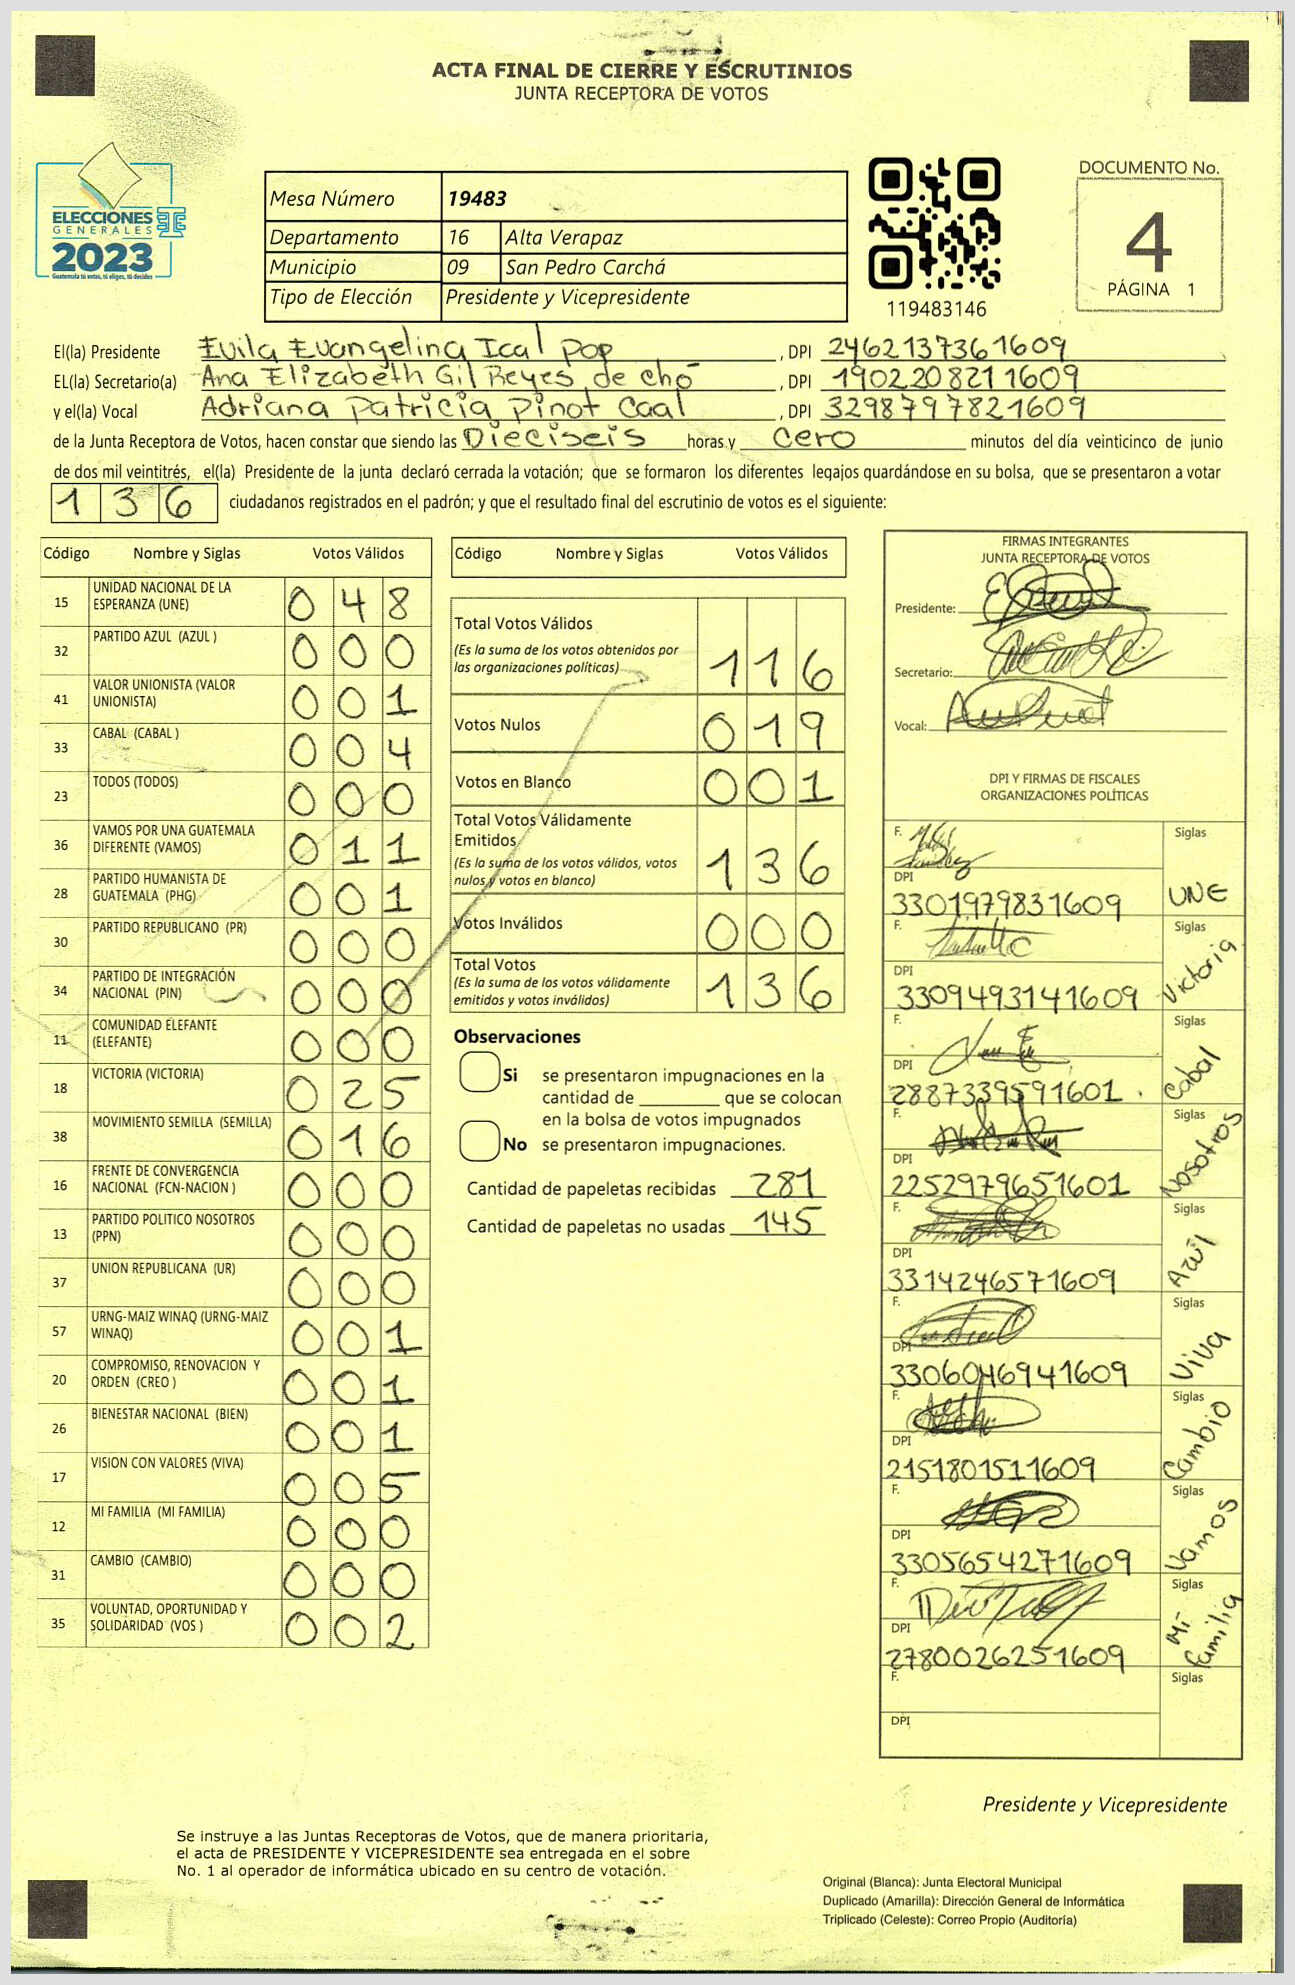 ACTA FINAL DE CIERRE Y ESCRUTINIOS
JUNTA RECEPTORA DE VOTOS
ELECCIONES
GENERALES
2023
Guatemala tú votas, tú eliges, tú decides
Mesa Número 19483
Departamento 16 Alta Verapaz
Municipio 09 San Pedro Carchá
Tipo de Elección Presidente y Vicepresidente
119483146
DOCUMENTO No.
4
PÁGINA 1
El(la) Presidente Evila Evangelina Ical Pop , DPI 2462137361609
EL(la) Secretario(a) Ana Elizabeth Gil Reyes de Chó , DPI 1902208211609
y el(la) Vocal Adriana Patricia Pinot Caal , DPI 3298797821609
de la Junta Receptora de Votos, hacen constar que siendo las Dieciseis horas y cero minutos del día veinticinco de junio
de dos mil veintitrés, el(la) Presidente de la junta declaró cerrada la votación; que se formaron los diferentes legajos guardándose en su bolsa, que se presentaron a votar
136 ciudadanos registrados en el padrón; y que el resultado final del escrutinio de votos es el siguiente:
Código Nombre y Siglas Votos Válidos
15 UNIDAD NACIONAL DE LA ESPERANZA (UNE) 048
32 PARTIDO AZUL (AZUL ) 000
41 VALOR UNIONISTA (VALOR UNIONISTA) 001
33 CABAL (CABAL ) 004
23 TODOS (TODOS) 000
36 VAMOS POR UNA GUATEMALA DIFERENTE (VAMOS) 011
28 PARTIDO HUMANISTA DE GUATEMALA (PHG) 001
30 PARTIDO REPUBLICANO (PR) 000
34 PARTIDO DE INTEGRACIÓN NACIONAL (PIN) 000
11 COMUNIDAD ELEFANTE (ELEFANTE) 000
18 VICTORIA (VICTORIA) 025
38 MOVIMIENTO SEMILLA (SEMILLA) 016
16 FRENTE DE CONVERGENCIA NACIONAL (FCN-NACION ) 000
13 PARTIDO POLITICO NOSOTROS (PPN) 000
37 UNION REPUBLICANA (UR) 000
57 URNG-MAIZ WINAQ (URNG-MAIZ WINAQ) 001
20 COMPROMISO, RENOVACION Y ORDEN (CREO ) 001
26 BIENESTAR NACIONAL (BIEN) 001
17 VISION CON VALORES (VIVA) 005
12 MI FAMILIA (MI FAMILIA) 000
31 CAMBIO (CAMBIO) 000
35 VOLUNTAD, OPORTUNIDAD Y SOLIDARIDAD (VOS ) 002
Código Nombre y Siglas Votos Válidos
Total Votos Válidos
(Es la suma de los votos obtenidos por
las organizaciones políticas) 116
Votos Nulos 019
Votos en Blanco 001
Total Votos Válidamente
Emitidos
(Es la suma de los votos válidos, votos
nulos y votos en blanco) 136
Votos Inválidos 000
Total Votos
(Es la suma de los votos válidamente
emitidos y votos inválidos) 136
Observaciones
Si se presentaron impugnaciones en la
cantidad de ________ que se colocan
en la bolsa de votos impugnados
No se presentaron impugnaciones.
Cantidad de papeletas recibidas 281
Cantidad de papeletas no usadas 145
FIRMAS INTEGRANTES
JUNTA RECEPTORA DE VOTOS
Presidente:
Secretario:
Vocal:
DPI Y FIRMAS DE FISCALES
ORGANIZACIONES POLÍTICAS
F. Siglas
DPI
3301979831609 UNE
F. Siglas
DPI
3309493141609 Victoria
F. Siglas
DPI
2887339591601 Cabal
F. Siglas
DPI
2252979651601 Nosotros
F. Siglas
DPI
3314246571609 Azul
F. Siglas
DPI
3306046941609 Viva
F. Siglas
DPI
2151801511609 Cambio
F. Siglas
DPI
3305654271609 Vamos
F. Siglas
DPI
2780026251609 Mi familia
F. Siglas
DPI
Presidente y Vicepresidente
Se instruye a las Juntas Receptoras de Votos, que de manera prioritaria,
el acta de PRESIDENTE Y VICEPRESIDENTE sea entregada en el sobre
No. 1 al operador de informática ubicado en su centro de votación.
Original (Blanca): Junta Electoral Municipal
Duplicado (Amarilla): Dirección General de Informática
Triplicado (Celeste): Correo Propio (Auditoría)